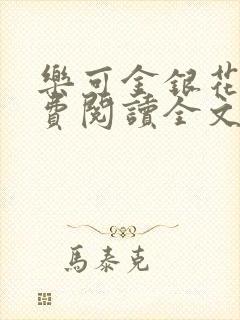 樂可金銀花
費閱讀全文
馬泰克